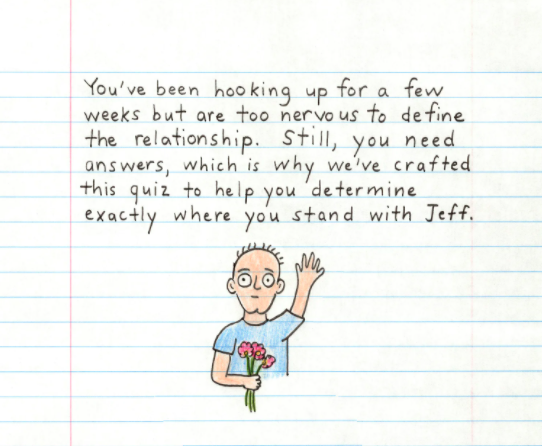 You've been hooking up for a few
weeks but are too nervous to define
the relationship. Still, you need
answers, which is why we've crafted
this quiz to help you determine
exactly where you stand with Jeff.